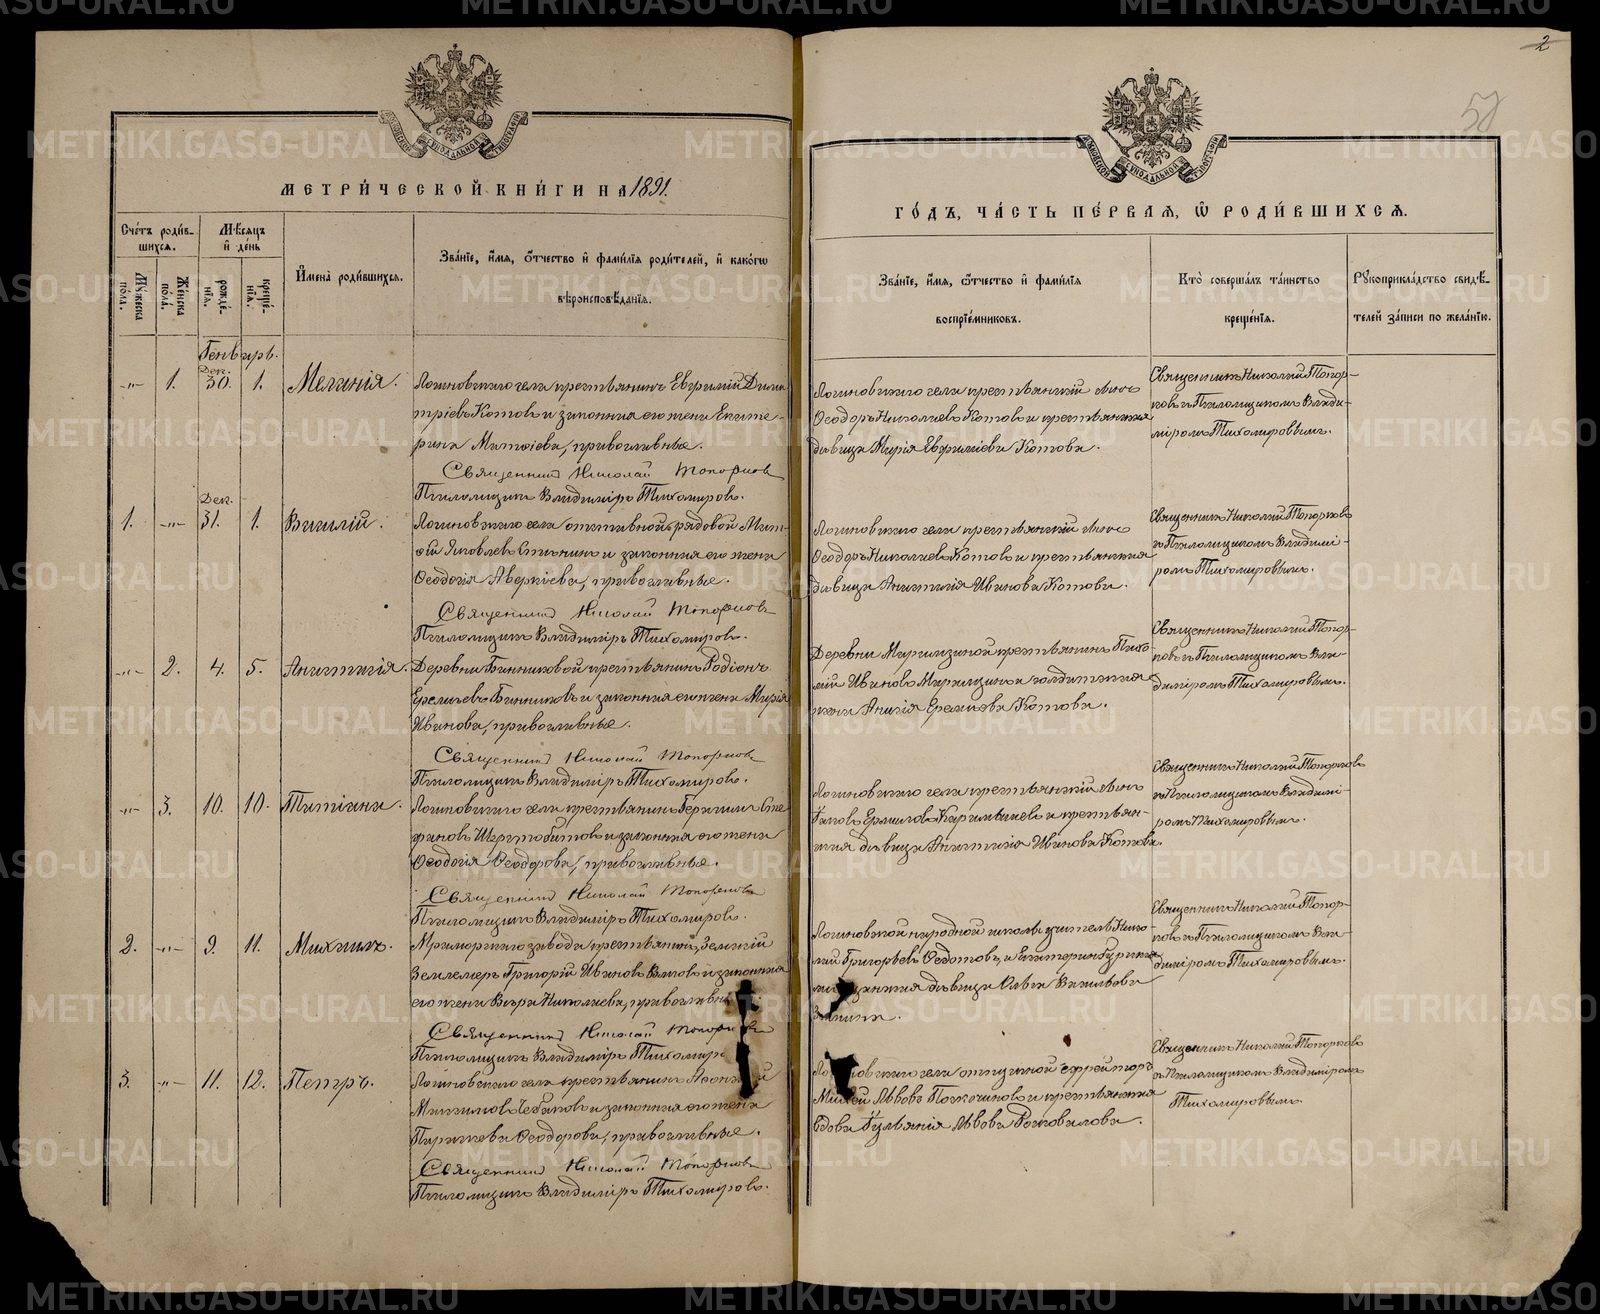 МЕТРИ́ЧЕСКОЙ КНИ́ГИ НА 1891.
Сче́тъ роди́в-
шихся.
Мѣ́сяцъ
и҆ де́нь
Му́жеска
по́ла.
Же́нска
по́ла.
рожде́-
нїѧ.
креще́-
нїѧ.
И҆мена̀ роди́вшихсѧ.
Зва́нїе, и҆́мѧ, ѻ҆́тчество и҆ фами́лїѧ роди́телей, и҆ како́гѡ
вѣроисповѣ́данїѧ.
Генварь.
" 1. Дек. 30. 1. Мелания.
Логиновскаго села крестьянинъ Евфимій Дими-
тріевъ Котовъ и законная его жена Екате-
рина Матѳіева, православные.
Священникъ Николай Топорковъ
Псаломщикъ Владиміръ Тихомировъ.
1. " Дек. 31. 1. Василій.
Логиновскаго села отставной рядовой Мат-
ѳій Яковлевъ и законная его жена
Ѳеодосія Аверкіева, православные.
Священникъ Николай Топорковъ
Псаломщикъ Владиміръ Тихомировъ.
" 2. 4. 5. Анастасія.
Деревни Банниковой крестьянинъ Родіонъ
Еремѣевъ Банниковъ и законная его жена Марія
Иванова, православные.
Священникъ Николай Топорковъ
Псаломщикъ Владиміръ Тихомировъ.
" 3. 10. 10. Татіана.
Логиновскаго села крестьянинъ Герасимъ Сте-
фановъ Шерстобитовъ и законная его жена
Ѳеодосія Ѳеодорова, православные.
Священникъ Николай Топорковъ
Псаломщикъ Владиміръ Тихомировъ.
2. " 9. 11. Михаилъ.
Мраморскаго завода крестьянинъ, Земскій
Землемеръ Григорій Ивановъ и законная
его жена Вѣра Николаева, православн
Священникъ Николай Топорковъ
Псаломщикъ Владиміръ Тихомир
3. " 11. 12. Петръ.
Логиновскаго села крестьянинъ
Максимовъ и законная его жена
Параскева Ѳеодорова, православные.
Священникъ Николай Топорковъ
Псаломщикъ Владиміръ Тихомировъ.
2
58
ГО́ДЪ, ЧА́СТЬ ПЕ́РВАѦ, Ѡ҆ РОДИ́ВШИХСѦ.
Зва́нїе, и҆́мѧ, ѻ҆́тчество и҆ фами́лїѧ
воспрїе́мниковъ.
Кто̀ соверша́лъ та́инство
креще́нїѧ.
Рꙋкоприкла́дство свидѣ́-
телей за́писи по жела́нїю.
Логиновскаго села крестьянскій сынъ
Ѳеодоръ Николаевъ Котовъ и крестьянская
дѣвица Марія Евфиміева Котова.
Священникъ Николай Топор-
ковъ съ Псаломщикомъ Влади-
міромъ Тихомировымъ.
Логиновскаго села крестьянскій сынъ
Ѳеодоръ Николаевъ Котовъ и крестьянская
дѣвица Анастасія Иванова Котова.
Священникъ Николай Топорковъ
съ Псаломщикомъ Владимі-
ромъ Тихомировымъ.
Деревни крестьянинъ
Ивановъ и солдатская
жена Еремѣева Котова.
Священникъ Николай Топор-
ковъ съ Псаломщикомъ Вла-
диміромъ Тихомировымъ.
Логиновскаго села крестьянскій сынъ
Ермиловъ и крестьян-
ская дѣвица Анастасія Иванова Котова.
Священникъ Николай Топорковъ
съ Псаломщикомъ Владимі-
ромъ Тихомировымъ.
Логиновской народной школы учитель Нико-
лай Григорьевъ Ѳедотовъ, и Екатеринбургская
мѣщанская дѣвица Ольга Васильева
Священникъ Николай Топор-
ковъ съ Псаломщикомъ Вла-
диміромъ Тихомировымъ.
Логиновскаго села ефрейторъ
Львовъ и крестьянская
вдова Львова
Священникъ Николай Топорковъ
съ Псаломщикомъ Владиміромъ
Тихомировымъ
METRIKI.GASO-URAL.RU